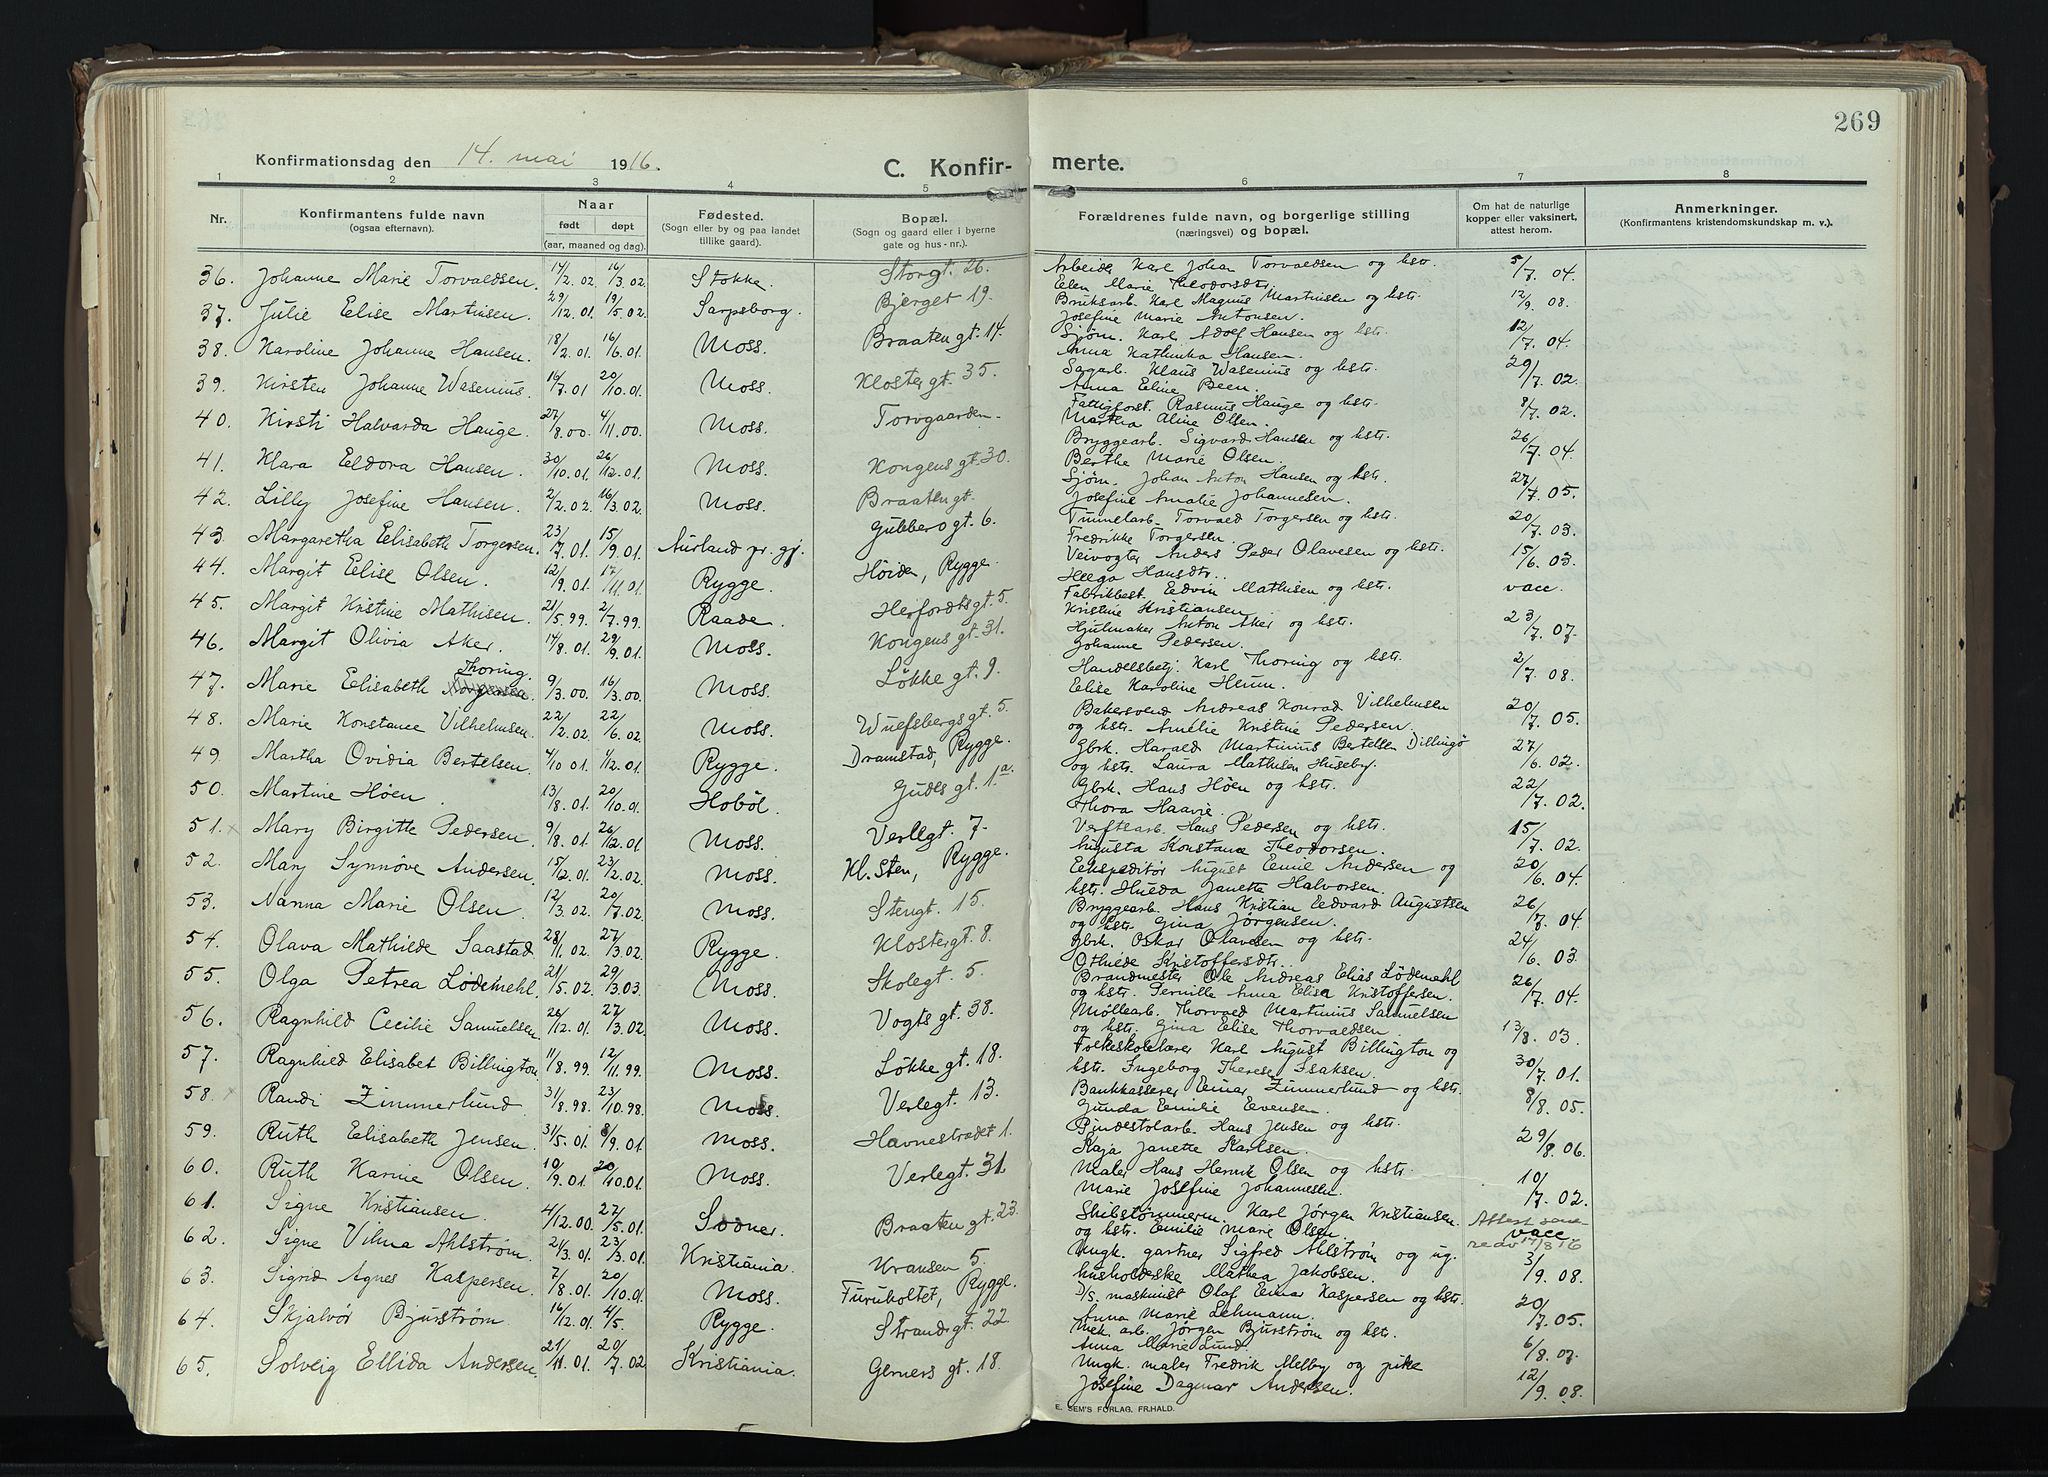 269
Konfirmationsdag den 14. mai 1916.
C. Konfir- merte.
1 2 3 4 5 6 7 8
Nr. Konfirmantens fulde navn (ogsaa efternavn). Naar født døpt (aar, maaned og dag). Fødested. (Sogn eller by og paa landet tillike gaard). Bopæl. (Sogn og gaard eller i byerne gate og hus-nr.). Forældrenes fulde navn, og borgerlige stilling (næringsvei) og bopæl. Om hat de naturlige kopper eller vaksinert, attest herom. Anmerkninger. (Konfirmantens kristendomskundskap m. v.).
36. Johanne Marie Torvaldsen. 14/2. 02. 16/3. 02. Stokke. Storgt. 26. Arbeider Karl Johan Torvaldsen og hstr. Elen Marie Theodorsdtr. 5/7. 04.
37. Julie Elise Martinsen. 29/12. 01. 19/5. 02. Sarpsborg. Bjerget 19. Bruksarb. Karl Magnus Martinsen og hstr. Josefine Marie Antonsen. 12/9. 08.
38. Karoline Johanne Hansen. 18/2. 01. 16/6. 01. Moss. Braaten gt. 14. Sjøm. Karl Adolf Hansen og hstr. Anna Kathinka Hansen. 12/7. 04.
39. Kirsten Johanne Wasenius. 16/7. 01 20/10. 01. Moss. Klostergt. 35. Sagarb. Klaus Wasenius og hstr. Anna Eline Been. 29/7. 02.
40. Kirsti Halvarda Hauge. 27/8. 00. 4/11. 00. Moss. Torvgaarden. Fattigforst. Rasmus Hauge og hstr. Martha Aline Olsen. 8/7. 02.
41. Klara Eldora Hansen. 30/10. 01. 26/12. 01. Moss. Kongens gt. 30. Bryggearb. Sigvard Hansen og hstr. Berthe Marie Olsen. 26/7. 04.
42. Lilly Josefine Hansen. 2/2. 02. 16/3. 02. Moss. Braaten gt. Sjøm. Johan Anton Hansen og hstr. Josefine Amalie Johannesen. 27/7. 05.
43. Margaretha Elisabeth Torgersen. 23/7. 01. 15/9. 01. Aurland pr. gj. Gubberogt. 6. Tunnelarb. Torvald Torgersen og hstr. Fredrikke Torgersen. 20/7. 03.
44. Margit Elise Olsen. 12/9. 01. 17/11. 01. Rygge. Høiden, Rygge. Veivogter Anders Peder Olavesen og hstr. Helga Hansdtr. 15/6. 03.
45. Margit Kristine Mathisen. 21/5. 99. 2/7. 99. Raade. Herfordts gt. 5. Fabrikbest. Edvin Mathisen og hstr. Kristine Kristiansen. vacc.
46. Margit Olivia Aker. 14/8. 01. 29/9. 01. Moss. Kongens gt. 31. Hjulmaker Anton Aker og hstr. Johanne Pedersen. 23/7. 07.
47. Marie Elisabeth Thoring. 9/3. 00. 16/3. 00. Moss. Løkke gt. 9. Handelsbetj. Karl Thoring og hstr. Elise Karoline Heum. 2/7. 08.
48. Marie Konstance Vilhelmsen. 22/2. 02. 22/6. 02. Moss. Wulfsbergs gt. 5. Bakersvend Andreas Konrad Vilhelmsen og hstr. Amelie Kristine Pedersen. 20/7. 05.
49. Martha Ovidia Bertelsen. 4/10 01. 1/12. 01. Rygge. Dramstad, Rygge. Gbrk. Harald Martinius Bertelsen Dillingø og hstr. Laura Mathisen Huseby. 27/6. 02.
50. Martine Høen. 13/8. 01. 20/10. 01. Hobøl. Gudes gt. 1a. Gbrk. Hans Høen og hstr. Thora Haavie. 22/7. 02.
51. Mary Birgitte Pedersen. 9/8. 01. 26/12. 01 Moss. Verlegt. 7. Verftsarb. Hans Pedersen og hstr. Augusta Konstance Theodorsen. 15/7. 02.
52. Mary Synnøve Andersen. 15/12. 01. 23/2. 02. Moss. Kl. Sten, Rygge. Ekspeditør August Emil Andersen og hstr. Hulda Janette Halvorsen. 20/6. 04.
53. Nanna Marie Olsen. 12/3. 02. 20/7. 02. Moss. Stengt. 15. Bryggearb. Hans Kristian Edvard Augustsen og hstr. Gina Jørgensen. 26/7. 04.
54. Olava Mathilde Saastad. 28/1. 02. 27/3. 02. Rygge. Klostergt. 8. Gbrk. Oskar Olavesen og hstr. Othilde Kristoffersdtr. 24/6. 03.
55. Olga Petrea Lødemehl. 21/5. 02. 29/3. 03. Moss. Skolegt. 5. Brandmester Ole Andreas Elias Lødemehl og hstr. Pernille Anna Elisa Kristoffersen. 26/7. 04.
56. Ragnhild Cecilie Samuelsen. 26/12. 01. 27/3. 02. Moss. Vogts gt. 38. Møllearb. Thorvald Martinius Samuelsen og hstr. Gina Elise Thorvaldsen. 13/8. 03.
57. Ragnhild Elisabet Billington. 11/8. 99. 12/11. 99. Moss. Løkke gt. 18. Folkeskolelærer Karl August Billington og hstr. Ingeborg Therese Isaksen. 30/7. 01.
58. Randi Zimmerlund. 31/8. 98. 23/10. 98. Moss. Verlegt. 13. Bankkasserer Einar Zimmerlund og hstr. Gunda Emilie Evensen. 8/8. 05.
59. Ruth Elisabeth Jensen. 31/5. 01. 8/9. 01. Moss. Havnestrædet 1. Pindestolarb. Hans Jensen og hstr. Kaja Janette Karlsen. 29/8. 06.
60. Ruth Karine Olsen. 10/9. 01. 20/10. 01. Moss. Verlegt. 31. Maler Hans Henrik Olsen og hstr. Marie Josefine Johannesen. 10/7. 02.
61. Signe Kristiansen. 4/12. 00. 27/5. 01. Soner. Braaten gt. 23. Skibstømmerm. Karl Jørgen Kristiansen og hstr. Emilie Marie Olsen. vacc.
62. Signe Vilma Ahlstrøm. 21/3. 01. 23/3. 01. Kristiania. Kransen 5. Ungk. gartner Sigfred Ahlstrøm og ug. husholderske Mathea Jakobsen. 3/9. 08.
63. Sigrid Agnes Kaspersen. 7/8. 01. 20/10. 01. Moss. Furuholtet, Rygge. D/s. maskinist Olaf Einar Kaspersen og hstr. Anna Marie Lehmann. 20/7. 05.
64. Skjalvør Bjurstrøm. 16/12. 01. 4/5. Rygge. Strandgt. 22. Mek. arb. Jørgen Bjurstrøm og hstr. Anna Marie Lund. 6/8. 07.
65. Solveig Ellida Andersen. 21/11. 01. 20/7. 02. Kristiania. Gerners gt. 18. Ungk. maler Fredrik Melby og pike Josefine Dagmar Andersen. 12/9. 08.
E. SEM'S FORLAG, FR.HALD.